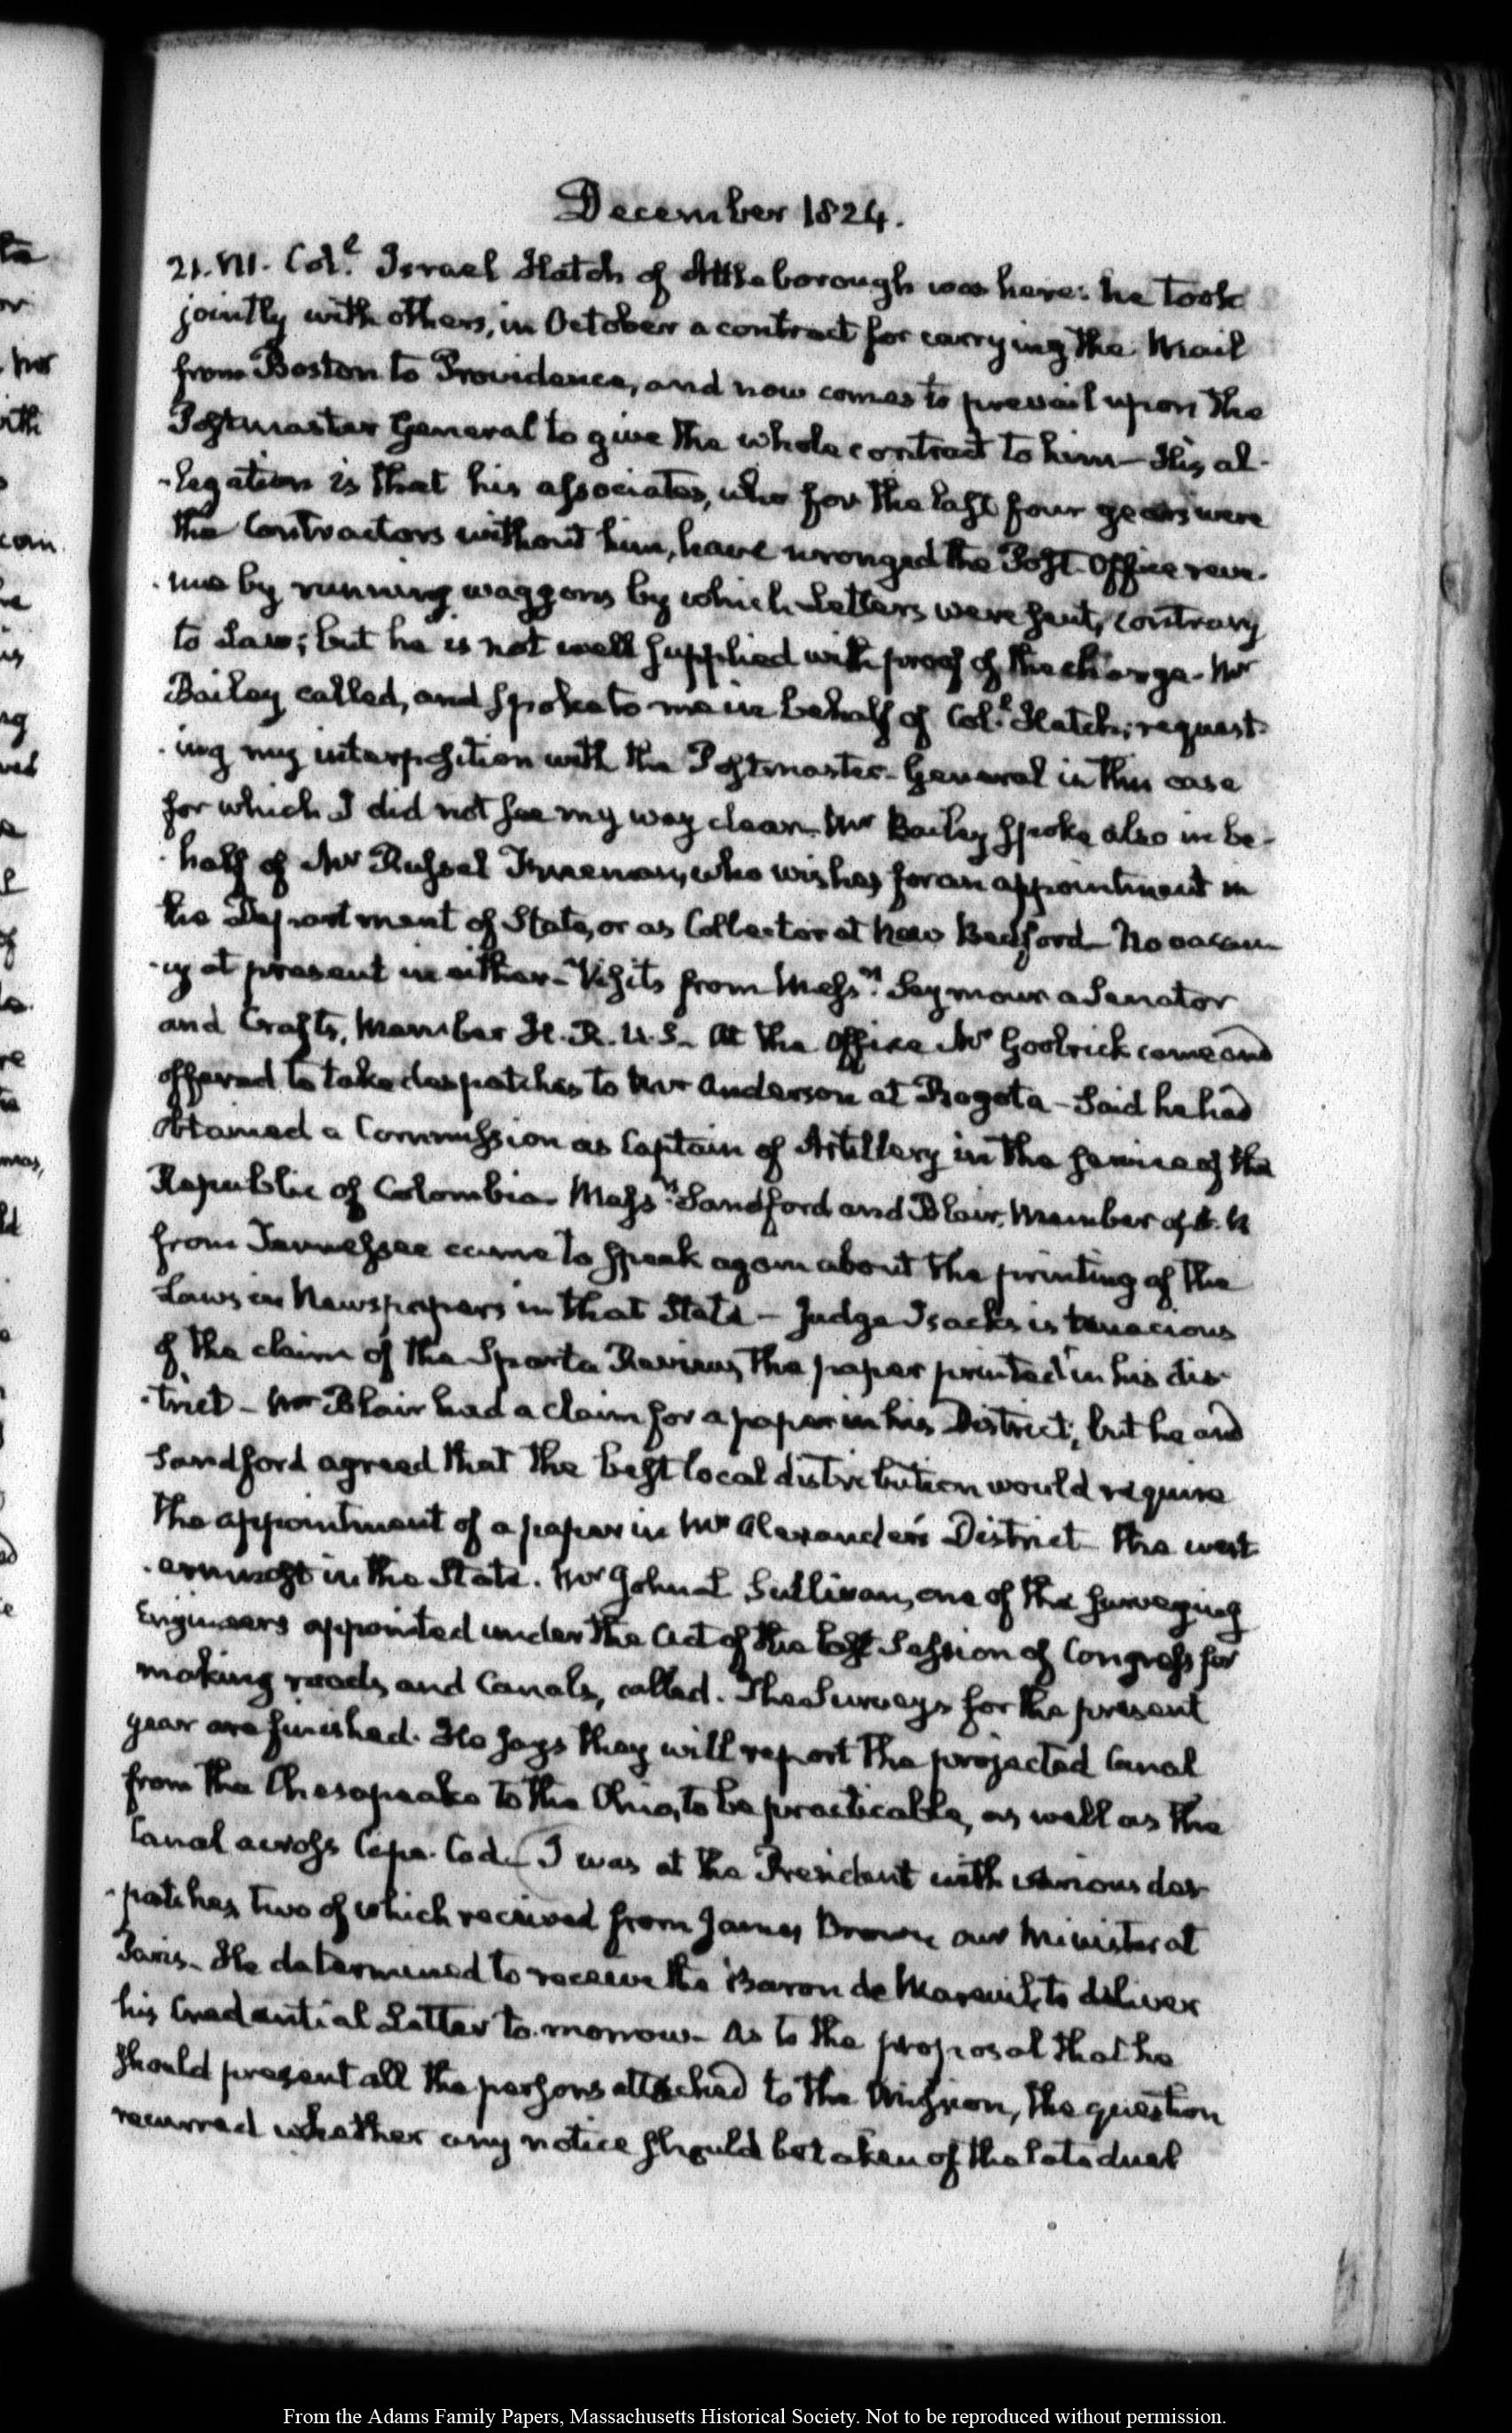 December 1824.
21. VII. Col.l Israel Hatch of Attleborough was here: he took
jointly with others, in October a contract for carrying the Mail
from Boston to Providence, and now comes to prevail upon the
Postmaster General to give the whole contract to him — His al-
-legation is that his associates, who for the last four years were
the Contractors without him, have wronged the Post-Office reve-
-nue by running waggons by which Letters were sent, contrary
to Law; but he is not well supplied with proof of the charge. Mr
Bailey called, and spoke to me in behalf of Col.l Hatch; request-
-ing my interposition with the Postmaster-General in this case
for which I did not see my way clear. Mr Bailey spoke also in be-
-half of Mr Russel Freeman, who wishes for an appointment in
the Department of State, or as Collector at New Bedford — No vacan-
-cy at present in either — Visits from Messrs. Seymour a Senator
and Crafts, Member H. R. U. S. — At the Office Mr Goolrick came and
offered to take despatches to Mr Anderson at Bogota — Said he had
obtained a Commission as Captain of Artillery in the service of the
Republic of Colombia. Messrs. Sandford and Blair, Member of
from Tennessee came to speak again about the printing of the
Laws in Newspapers in that State — Judge Isacks is tenacious
of the claim of the Sparta Review, the paper printed in his dis-
-trict — Mr Blair had a claim for a paper in his District; but he and
Sandford agreed that the best local distribution would require
the appointment of a paper in Mr Alexander's District the west-
-ernmost in the State. Mr John L Sullivan, one of the surveying
Engineers appointed under the Act of the last Session of Congress for
making roads and Canals, called. The Surveys for the present
year are finished. He says they will report the projected Canal
from the Chesapeake to the Ohio, to be practicable, as well as the
Canal across Cape-Cod — I was at the President with various des-
-patches two of which received from James Brown our Minister at
Paris — He determined to receive the Baron de Mareuil, to deliver
his Credential Letter to-morrow — As to the proposal that he
should present all the persons attached to the Mission, the question
recurred whether any notice should be taken of the late duel
From the Adams Family Papers, Massachusetts Historical Society. Not to be reproduced without permission.